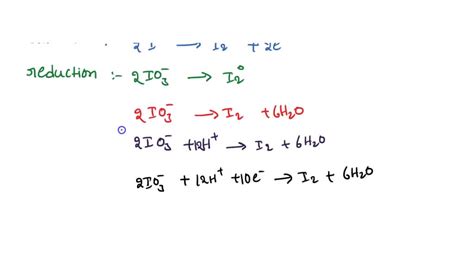 2I⁻ → I₂ + 2e⁻
reduction :- 2IO₃⁻ → I₂⁰
2IO₃⁻ → I₂ + 6H₂O
2IO₃⁻ + 12H⁺ → I₂ + 6H₂O
2IO₃⁻ + 12H⁺ + 10e⁻ → I₂ + 6H₂O